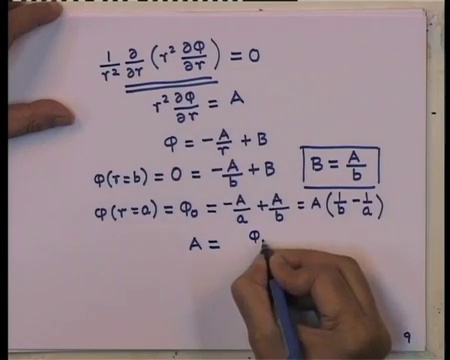 1/r² ∂/∂r (r² ∂φ/∂r) = 0
r² ∂φ/∂r = A
φ = -A/r + B
φ(r=b) = 0 = -A/b + B
B = A/b
φ(r=a) = φ₀ = -A/a + A/b = A(1/b - 1/a)
A = φ
9